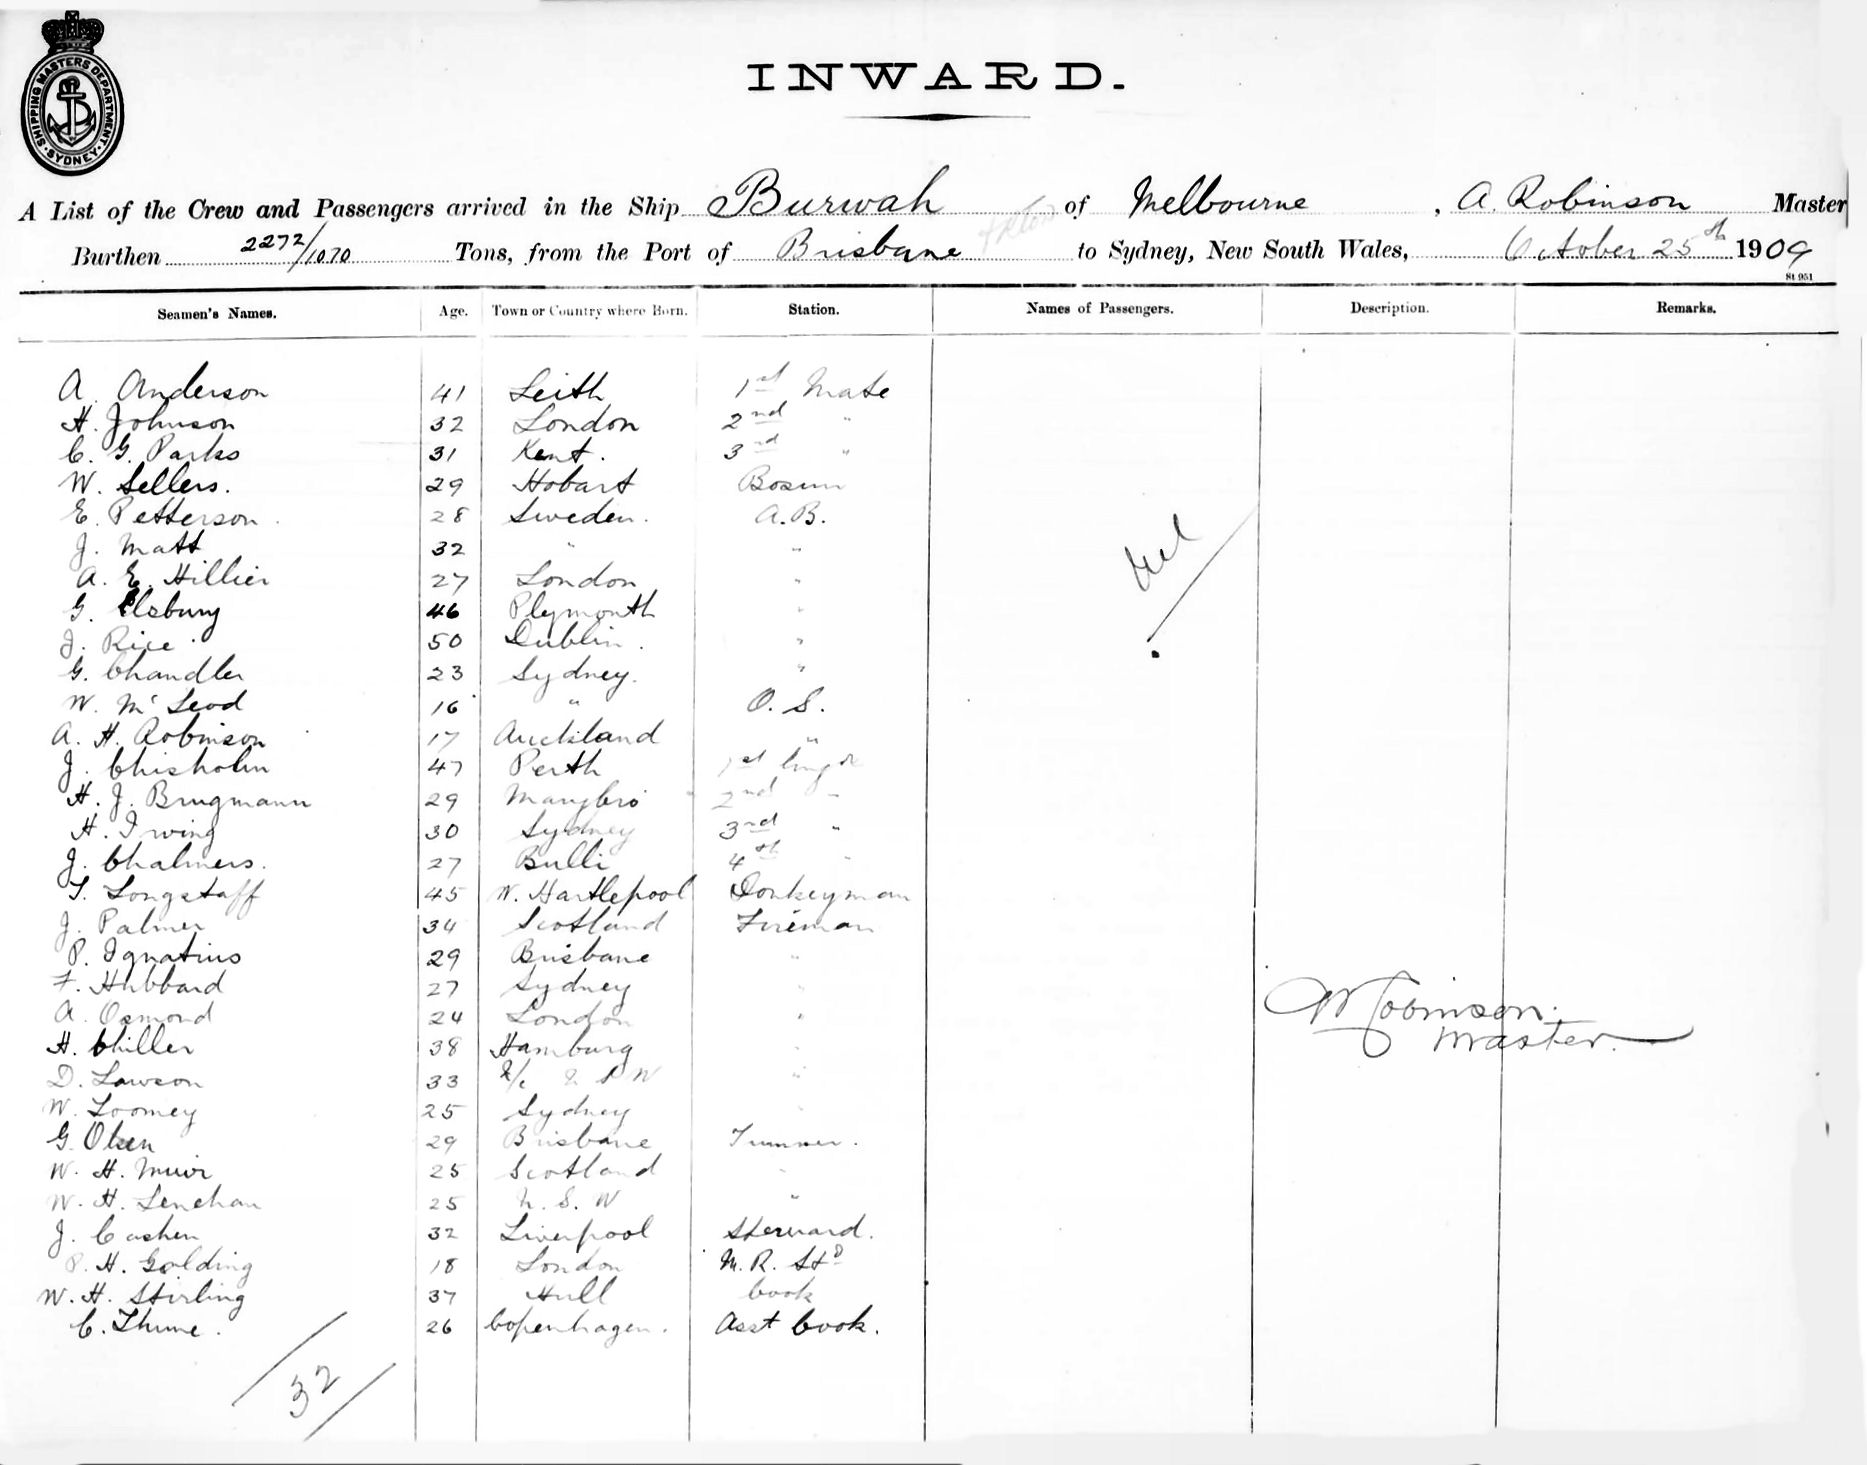 SHIPPING MASTERS DEPARTMENT
SYDNEY
INWARD.
A List of the Crew and Passengers arrived in the Ship Burwah of Melbourne, A. Robinson Master
Burthen 2272/1070 Tons, from the Port of Brisbane to Sydney, New South Wales, October 25th 1909
St 951
Seamen's Names. Age. Town or Country where Born. Station. Names of Passengers. Description. Remarks.
A. Anderson 41 Leith 1st Mate
H. Johnson 32 London 2nd "
C. G. Parks 31 Kent. 3rd "
W. Sellers. 29 Hobart Bosun
E. Petterson. 28 Sweden. A.B.
J. Matt 32 " "
A. E. Hillier 27 London "
G. Elsbury 46 Plymouth "
J. Rice 50 Dublin. "
G. Chandler 23 Sydney. "
W. McLeod 16 " O. S.
A. H. Robinson 17 Auckland "
J. Chisholm 47 Perth 1st
H. J. Brugmann 29 Marybro 2nd "
H. Irwing 30 Sydney 3rd "
J. Chalmers. 27 Bulli 4th "
T. Longstaff 45 W. Hartlepool Donkeyman
J. Palmer 34 Scotland Fireman
P. Ignatius 29 Brisbane "
F. Hubbard 27 Sydney "
A. Osmond 24 London "
H. Chiller 38 Hamburg "
D. Lawson 33 "
W. Toomey 25 Sydney "
G. Olsen 29 Brisbane Trimmer.
W. H. Muir 25 Scotland "
W. H. Lenehan 25 N. S. W "
J. Cashen 32 Liverpool Steward.
P. H. Golding 18 London M. R. Std
W. H. Stirling 37 Hull Cook
C. Thune. 26 Copenhagen. Asst Cook.
Nil
A Robinson.
Master.
32